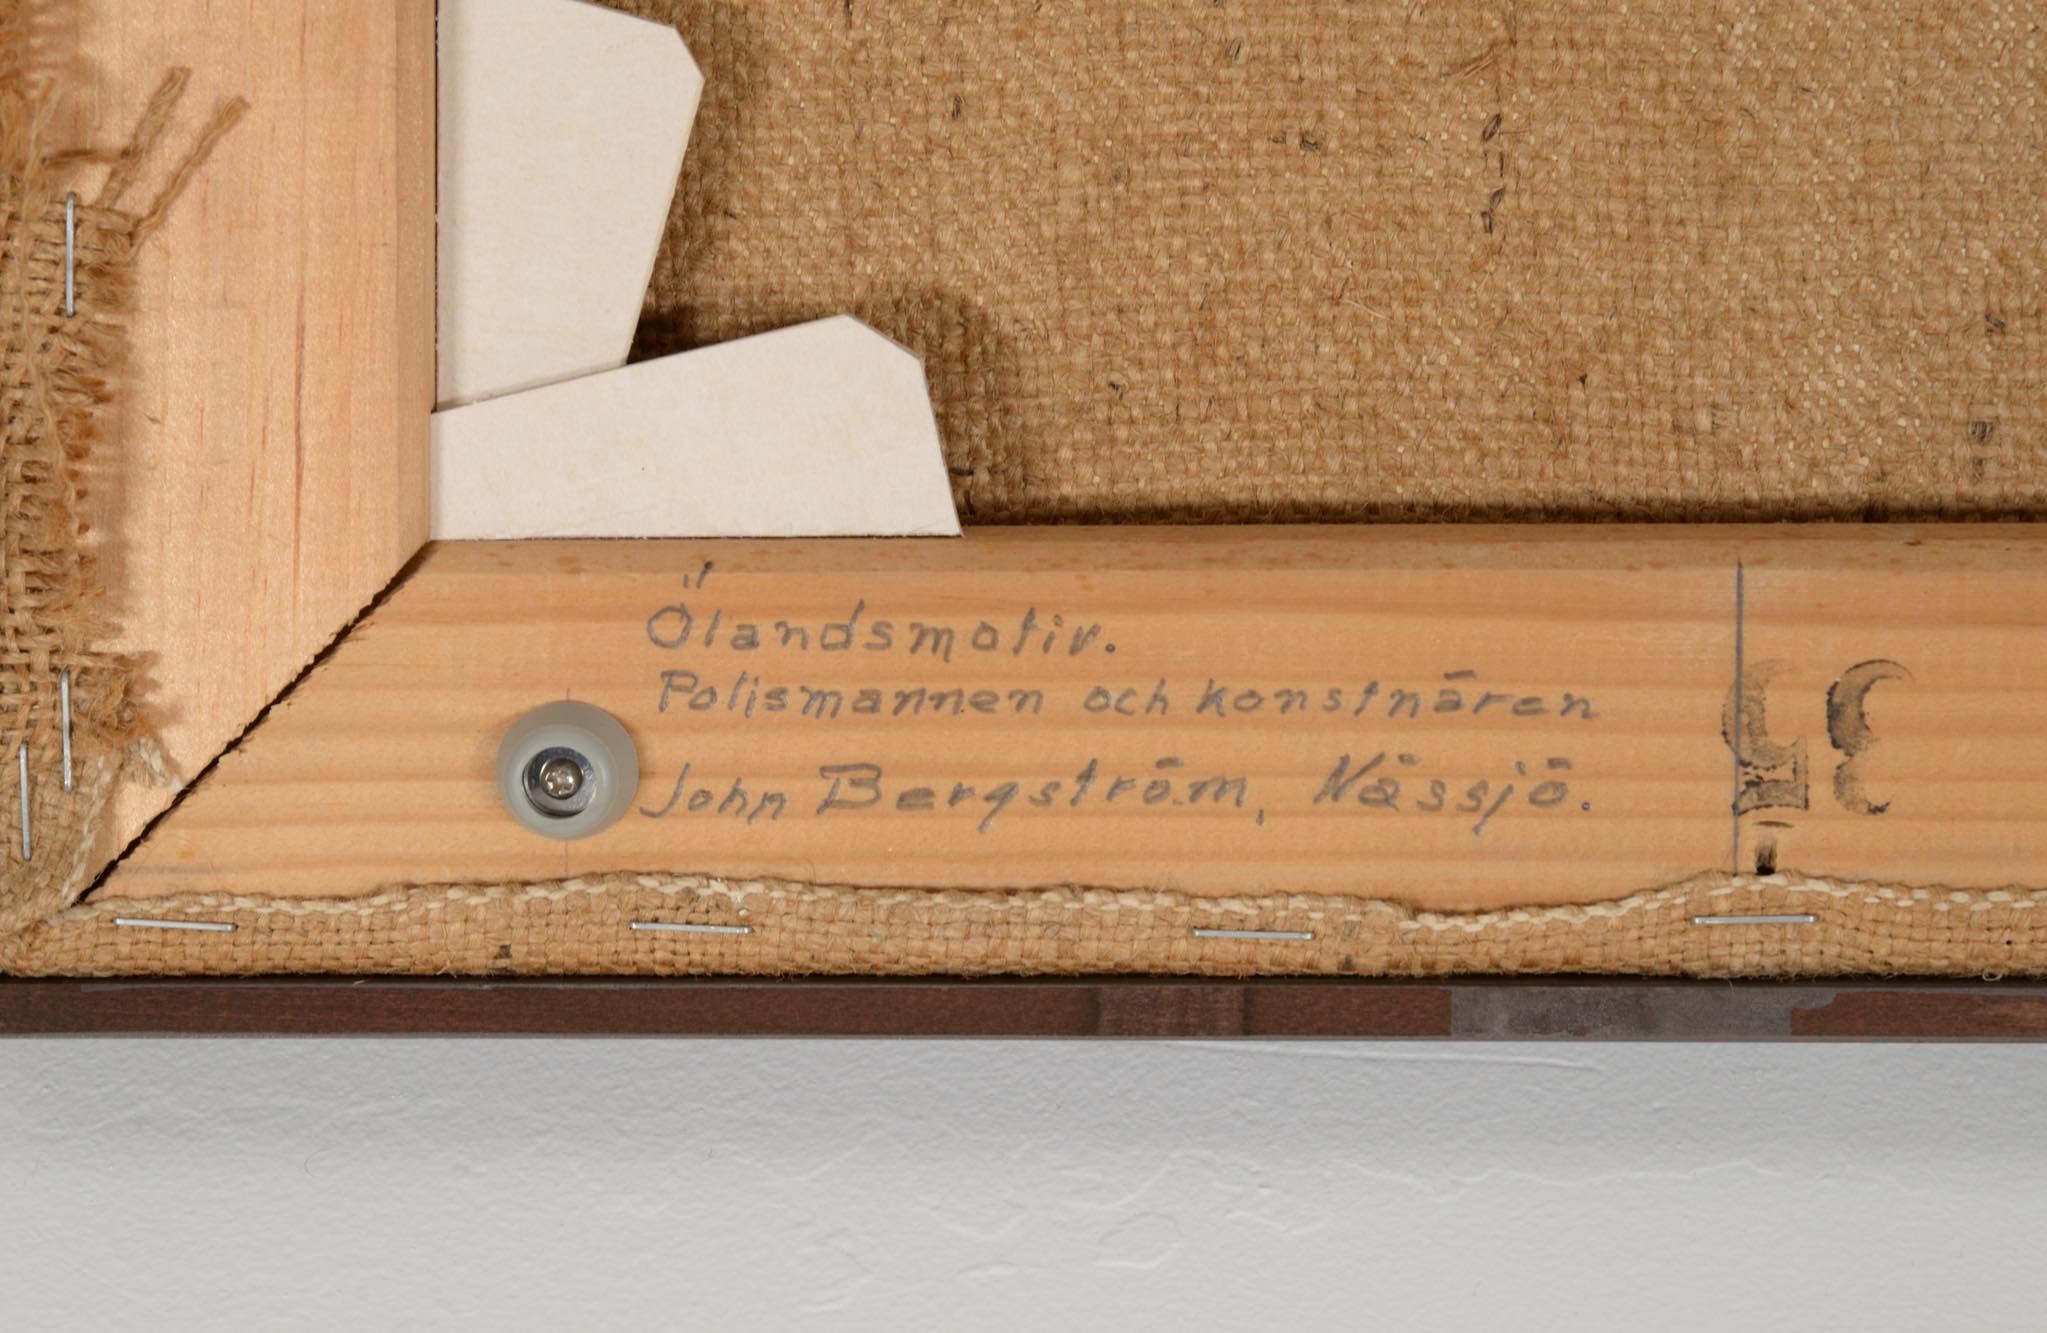 Ölandsmotiv.
Polismannen och konstnären
John Bergström, Nässjö.